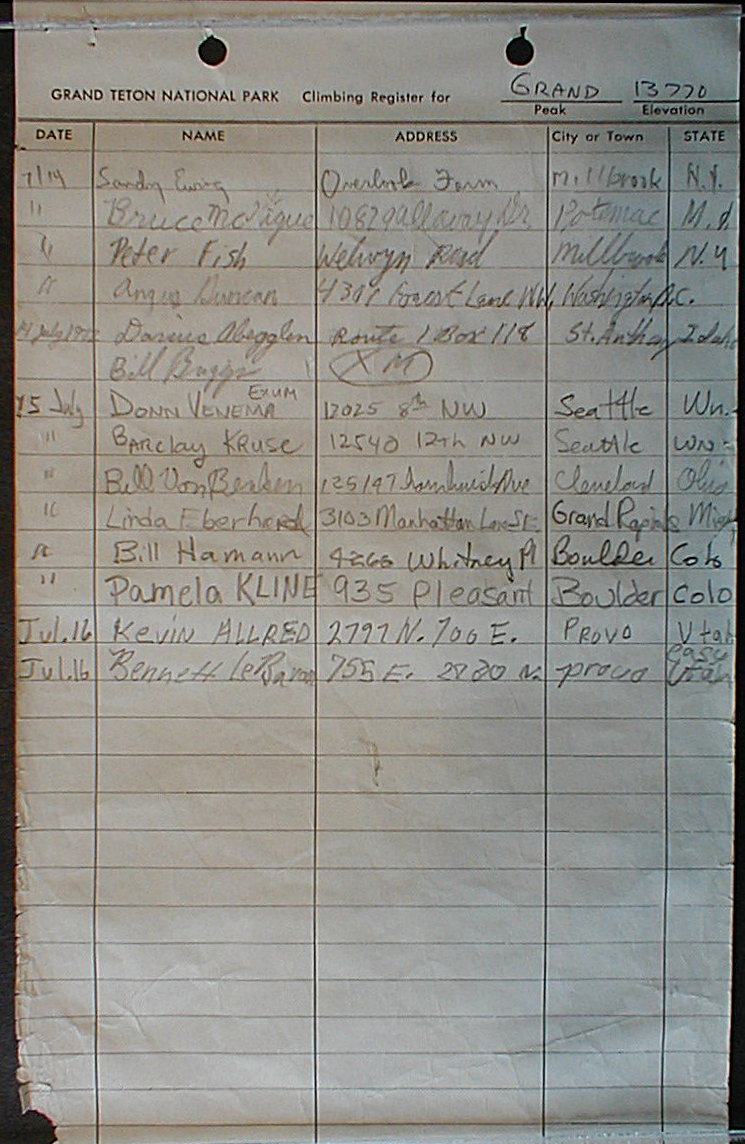 GRAND 13770
GRAND TETON NATIONAL PARK Climbing Register for
Peak Elevation
DATE NAME ADDRESS City or Town STATE
7/14 Sandy Ewing Overlook Farm Millbrook N.Y.
" Bruce 10829 Galloway Dr Potomac M.d.
" Peter Fish Welwyn Road Millbrook N.Y
" Angus Duncan 4307 Forest Lane NW, Washington D.C.
14 July Darius Abegglen Route 1 Box 118 St. Anthony Idaho
Bill Briggs XM
EXUM
15 July DONN VENEMA 12025 8th NW Seattle Wn.
" BARClay KRUSE 12540 12th NW Seattle WN
" Bill Cleveland Ohio
" Linda Eberhard 3103 Manhattan Lane SE Grand Rapids Mich
" Bill Hamann 4266 Whitney Pl Boulder Colo
" Pamela KLINE 935 Pleasant Boulder Colo
Jul.16 Kevin ALLRED 2797 N. 700 E. PROVO Utah
easy
Jul.16 Bennett LeBaron 755 E. 2780 N. provo Utah